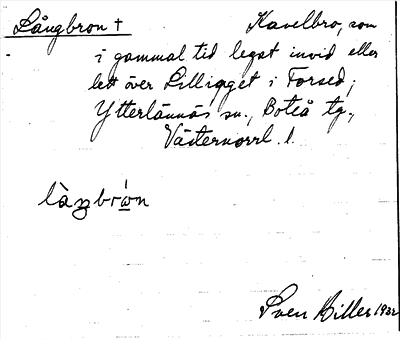 Långbron † Kavelbro, som
i gammal tid legat invid eller
lett över Lillrigget i Forsed;
Ytterlännäs sn., Boteå tg.,
Västernorrl. l.
làŋbrón
Sven Hiller 1932